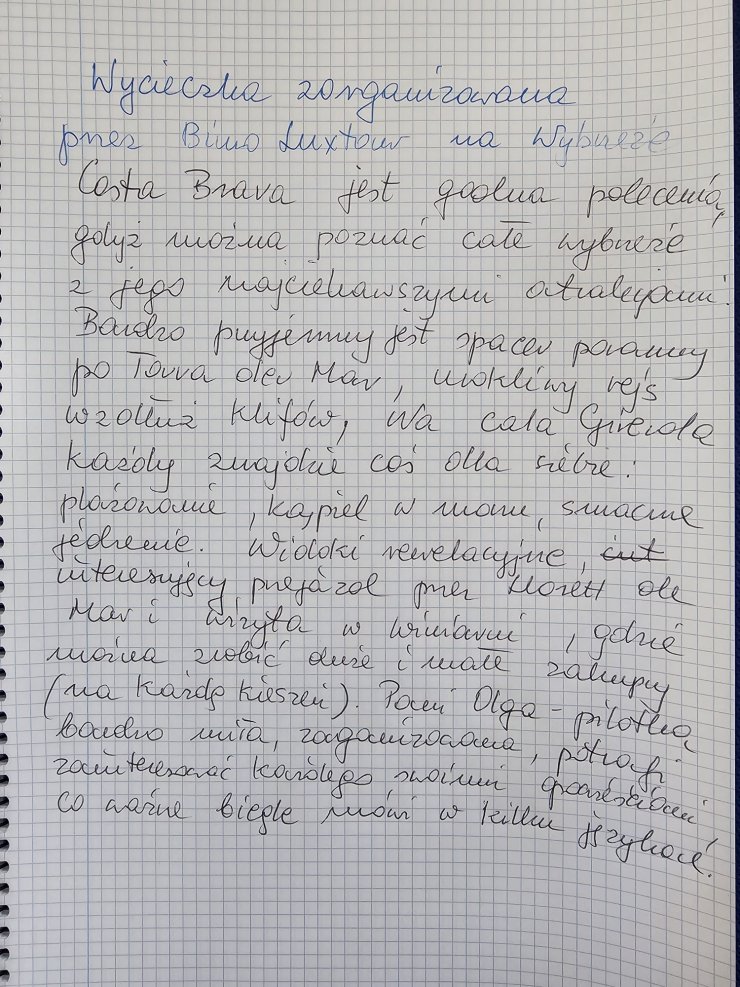 Wycieczka zorganizowana
przez Biuro Luxtour na Wybrzeże
Costa Brava jest godna polecenia,
gdyż można poznać całe wybrzeże
z jego najciekawszymi atrakcjami.
Bardzo przyjemny jest spacer poranny
po Torra der Mar, urokliwy rejs
wzdłuż klifów, Na cala Givierola
każdy znajdzie coś dla siebie:
plażowanie, kąpiel w morzu, smaczne
jedzenie. Widoki rewelacyjne, int
interesujący przejazd przez Llorett de
Mar i wizyta w winiarni, gdzie
można zrobić duże i małe zakupy
(na każdą kieszeń). Pani Olga - pilotka,
bardzo miła, zorganizowana, potrafi
zainteresować każdego swoimi opowieściami,
co ważne biegle mówi w kilku językach.